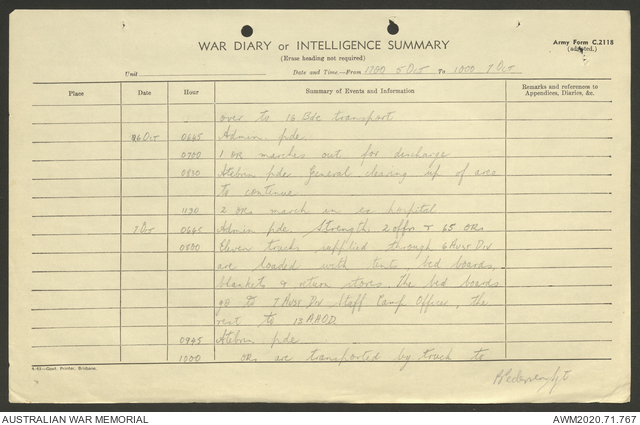 WAR DIARY or INTELLIGENCE SUMMARY
(Erase heading not required)
Army Form C.2118
(adapted.)
Unit
Date and Time—From 1200 5 Oct To 1000 7 Oct
Place Date Hour Summary of Events and Information Remarks and references to Appendices, Diaries, &c.
over to 16 Bde transport
6 Oct 0645 Admin pde
0700 1 OR marches out for discharge
0830 Atebrin pde. General clearing up of area
to continue
1130 2 ORs march in ex hospital
7 Oct 0645 Admin pde Strength 2 offr & 65 ORs
0800 Eleven trucks supplied through 6 Aust Div
are loaded with tents, bed boards,
blankets & return stores. The bed boards
go to 7 Aust Div Staff Camp Officer, the
rest to 13 AAOD
0945 Atebrin pde
1000 ORs are transported by truck to
4-43—Govt. Printer, Brisbane.
AUSTRALIAN WAR MEMORIAL
AWM2020.71.767